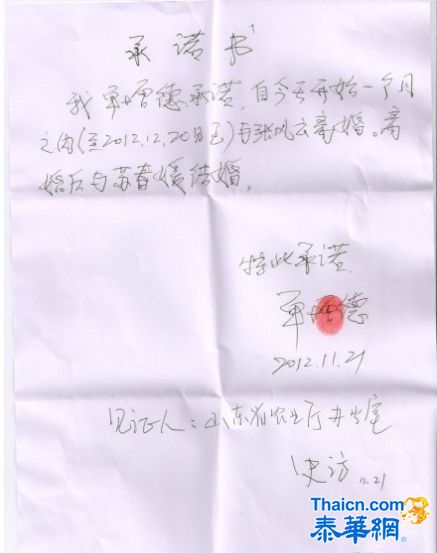 承诺书
我单增德承诺,自今天开始一个月
之内(至2012.12.20日至)与张风云离婚。离
婚后与苏春媛结婚,
特此承诺.
单增德
2012.11.21
见证人:山东省农业厅办公室
史访 11.21
Thaicn.com
泰華網®